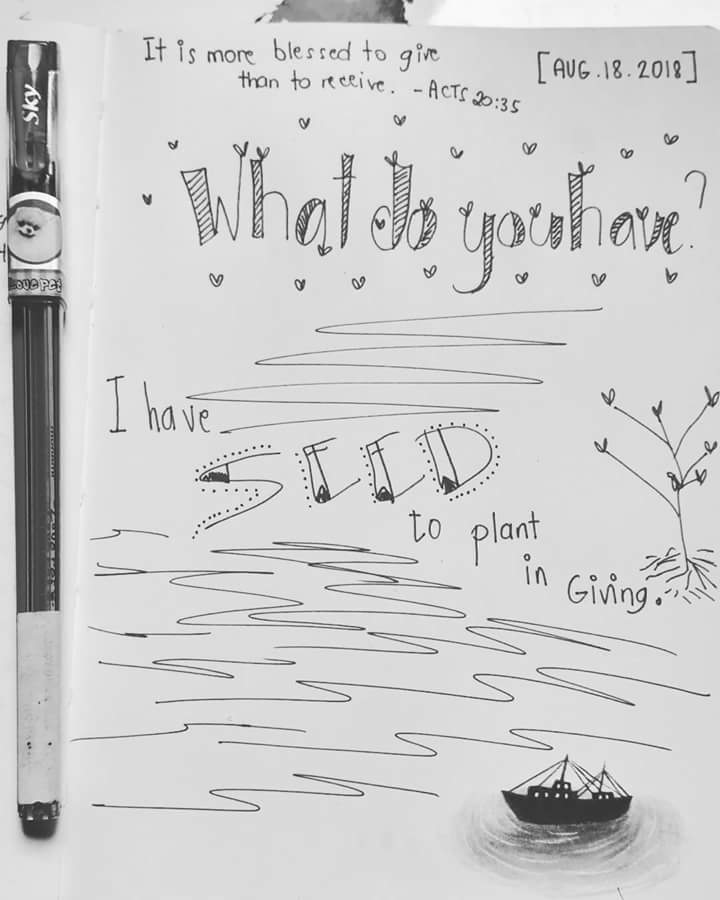 It is more blessed to give
than to receive. - ACTS 20:35
[AUG.18.2018]
What do you have?
I have
SEED
to plant
in Giving.
Sky